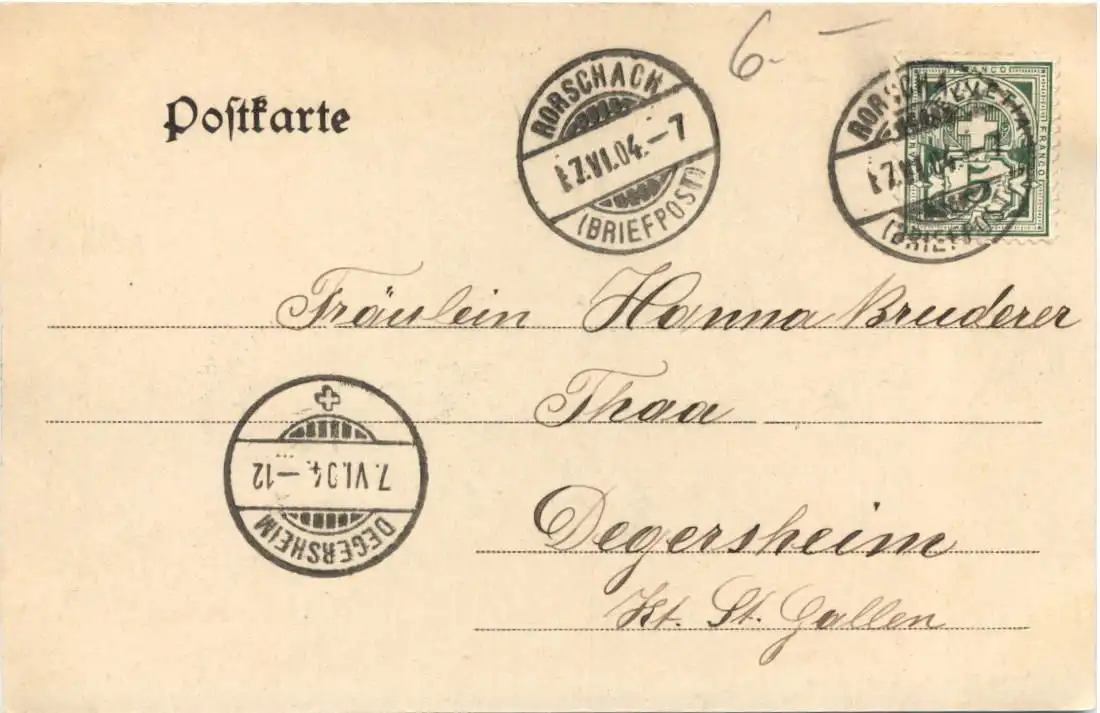 6.—
Postkarte
RORSCHACH
7.VI.04.–7
(BRIEFPOST)
RORSCH
7.VI.04.–7
(BRIEFPOST)
FRANCO
HELVETIA
FRANCO
5
Fräulein Hanna Bruderer
Thaa
Degersheim
Kt. St. Gallen
7.VI.04.–12
DEGERSHEIM